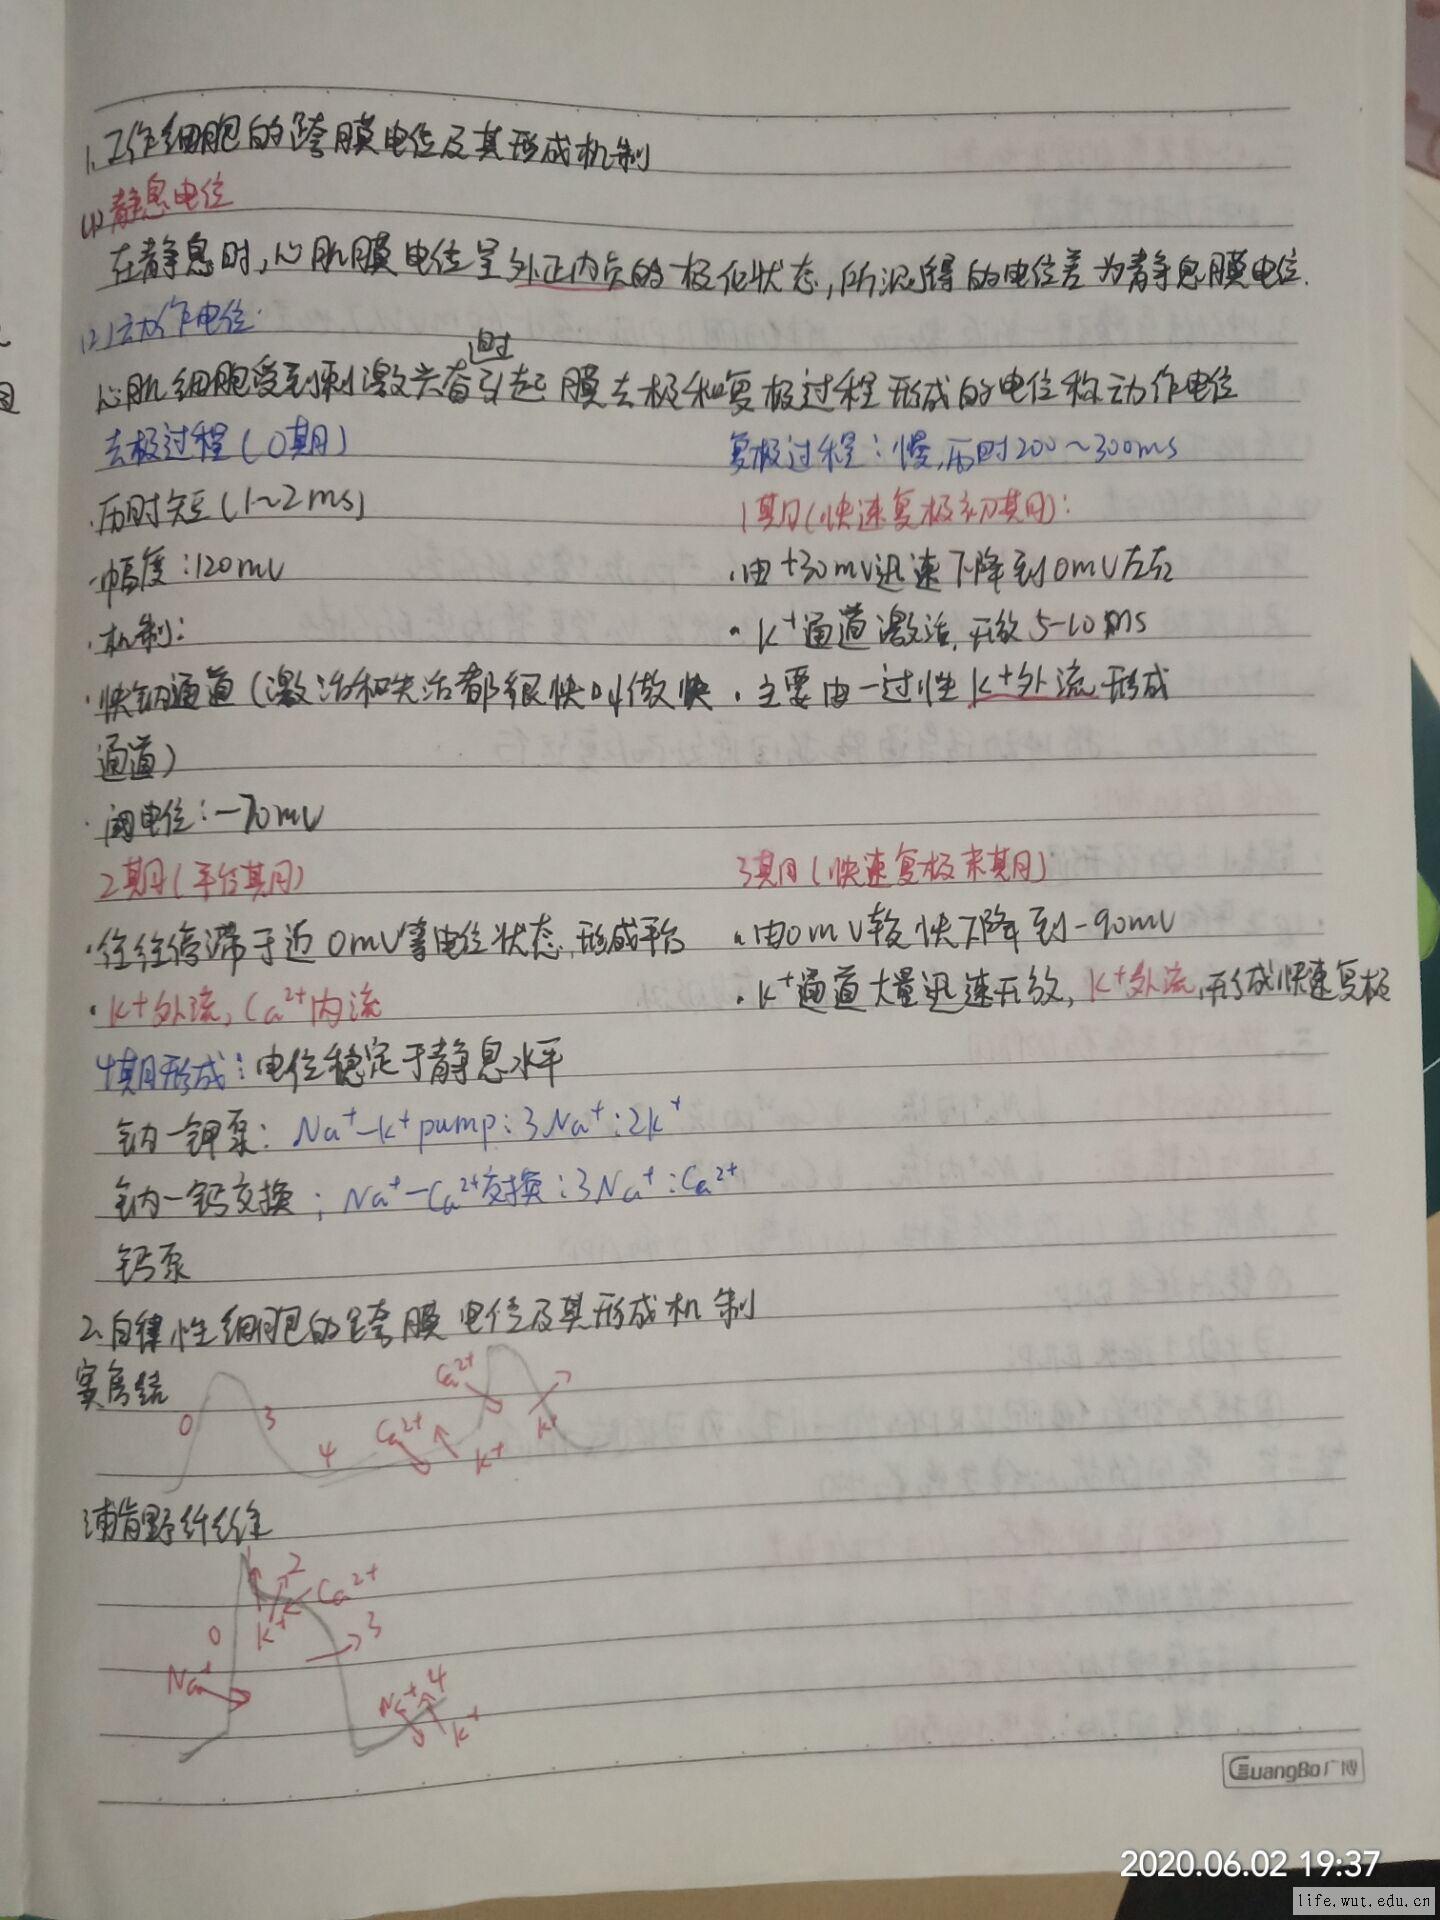 1、工作细胞的跨膜电位及其形成机制
(1)静息电位
在静息时,心肌膜电位呈外正内负的极化状态,所测得的电位差为静息膜电位.
(2)动作电位
心肌细胞受到刺激兴奋时引起膜去极和复极过程形成的电位称动作电位
去极过程(0期)
复极过程:慢,历时200~300ms
·历时短(1~2ms)
1期(快速复极初期):
·幅度:120mV
·由+30mV迅速下降到0mV左右
·机制:
·K+通道激活,开放5-10ms
·快钠通道(激活和失活都很快叫做快
通道)
·主要由一过性K+外流形成
·阈电位:-70mV
2期(平台期)
3期(快速复极末期)
·往往停滞于近0mV等电位状态,形成平台
·由0mV较快下降到-90mV
·K+外流,Ca²⁺内流
·K+通道大量迅速开放,K+外流,形成快速复极
4期形成:电位稳定于静息水平
钠-钾泵:Na⁺-K⁺pump:3Na⁺:2K⁺
钠-钙交换:Na⁺-Ca²⁺交换:3Na⁺:Ca²⁺
钙泵
2、自律性细胞的跨膜电位及其形成机制
窦房结
0 3 4 Ca²⁺ K⁺ Ca²⁺ K⁺
浦肯野纤维
1 2 Ca²⁺
0 K⁺ 3
Na⁺ Na⁺ 4 K⁺
GuangBo广博
2020.06.02 19:37
life.wut.edu.cn